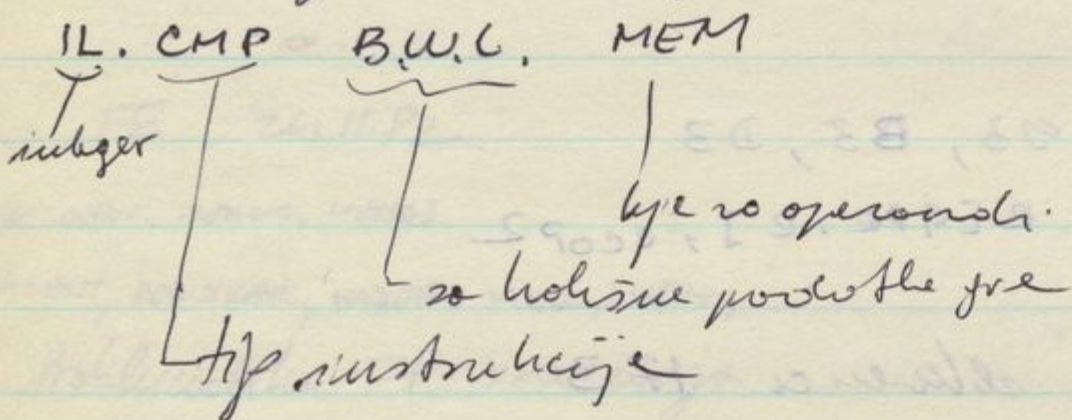 IL. CMP B.W.L. MEM
integer
kje so operandi.
za kolikšne podatke gre
tip instrukcije